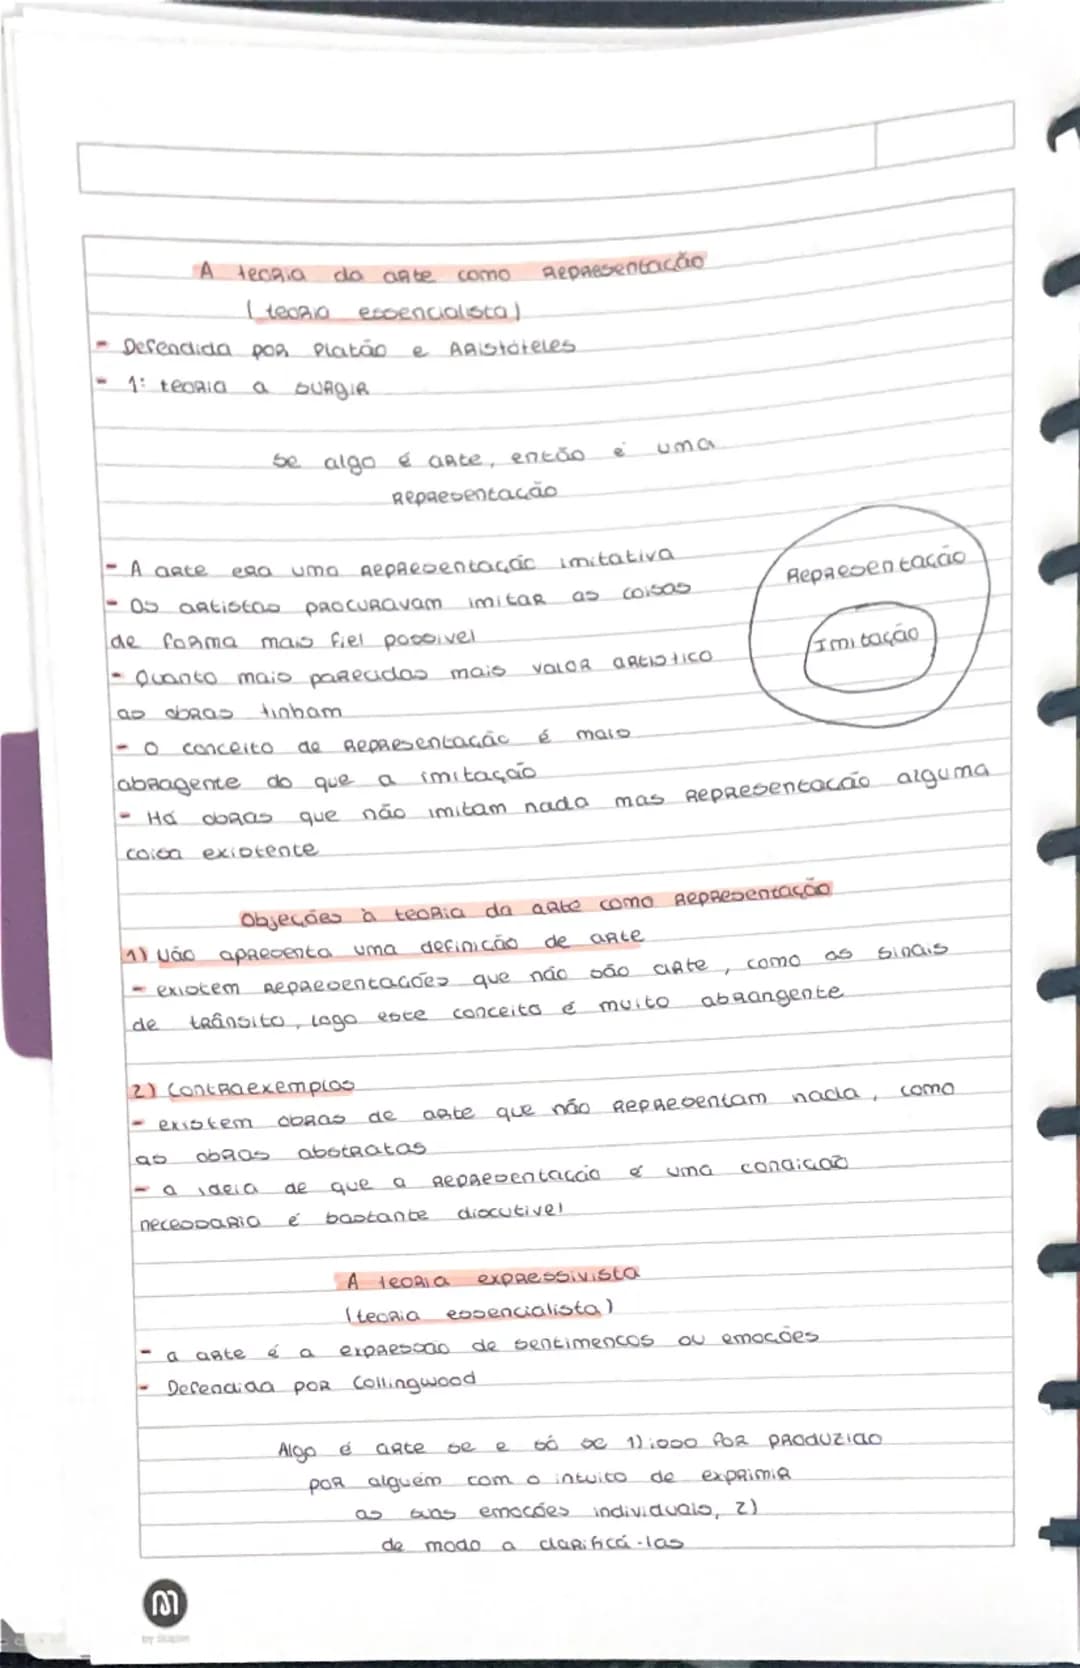 A teoria da arte como Representação
(teoria essencialista)
- Defendida por Platão e Aristóteles
- 1ª teoria a surgir
Se algo é arte, então é uma
Representação
- A arte era uma representação imitativa
- Os artistas procuravam imitar as coisas
de forma mais fiel possível
- Quanto mais parecidas mais valor artístico
as obras tinham
- O conceito de Representação é mais
abragente do que a imitação
- Há obras que não imitam nada mas Representacão alguma
coisa existente
Representação
Imitação
Objeções à teoria da arte como Representação
1) Não apresenta uma definição de arte
- existem Representações que não são arte, como os sinais
de trânsito, logo este conceito é muito abrangente
2) Contraexemplos
- existem obras de arte que não Representam nada, como
as obras abstratas
- a ideia de que a Representação é uma condição
necessaria é bastante discutivel
A teoria expressivista
(teoria essencialista)
- a arte é a expressão de sentimentos ou emoções
- Defendida por Collingwood
Algo é arte se e só se 1) isso for produzido
por alguém com o intuito de exprimir
as suas emoções individuais, 2)
de modo a clarificá-las
by